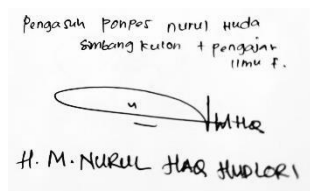 Pengasuh Ponpes Nurul Huda
Simbang Kulon + pengajar
ilmu f.
H. M. NURUL HAQ HUDLORI